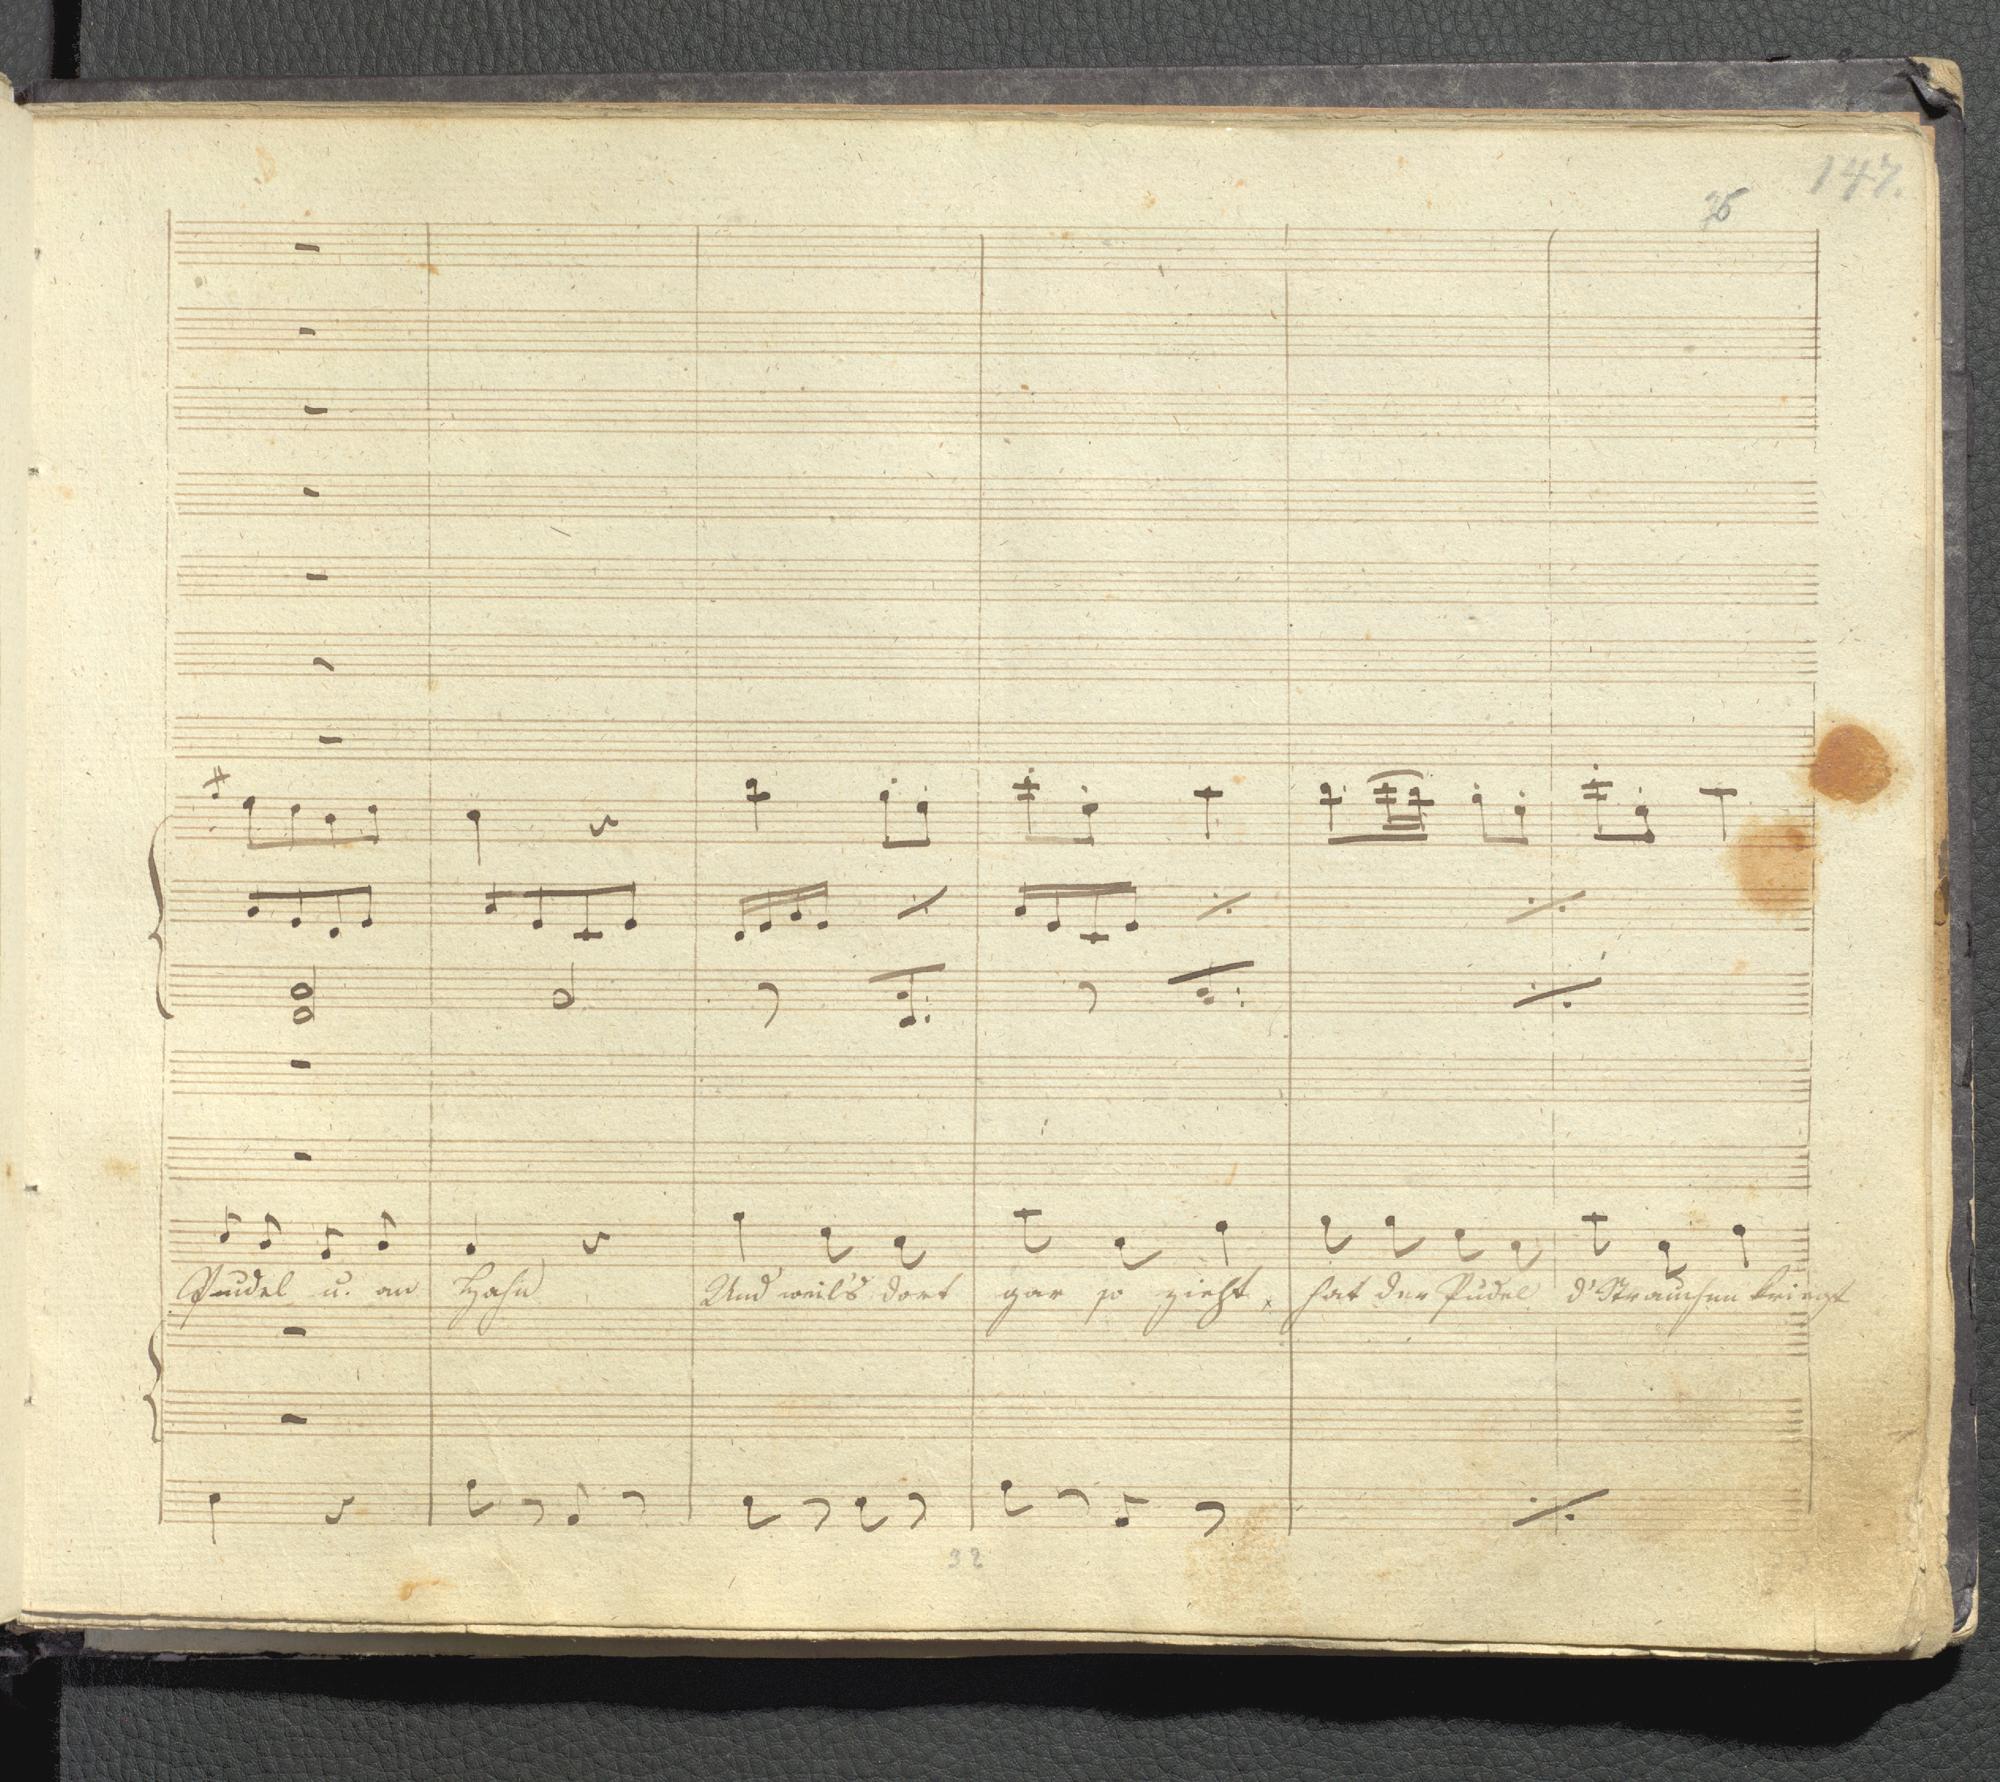 147.
Pudel u. an Hahn Und weil's dort gar so zieht, hat der Pudel d'Strauchen kriegt
32